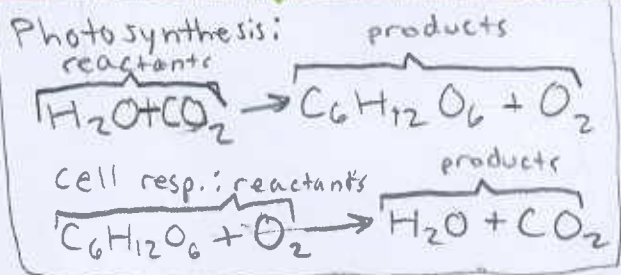 Photosynthesis: products
reactants
H₂O+CO₂ → C₆H₁₂O₆ + O₂
cell resp.: reactants products
C₆H₁₂O₆ + O₂ → H₂O + CO₂